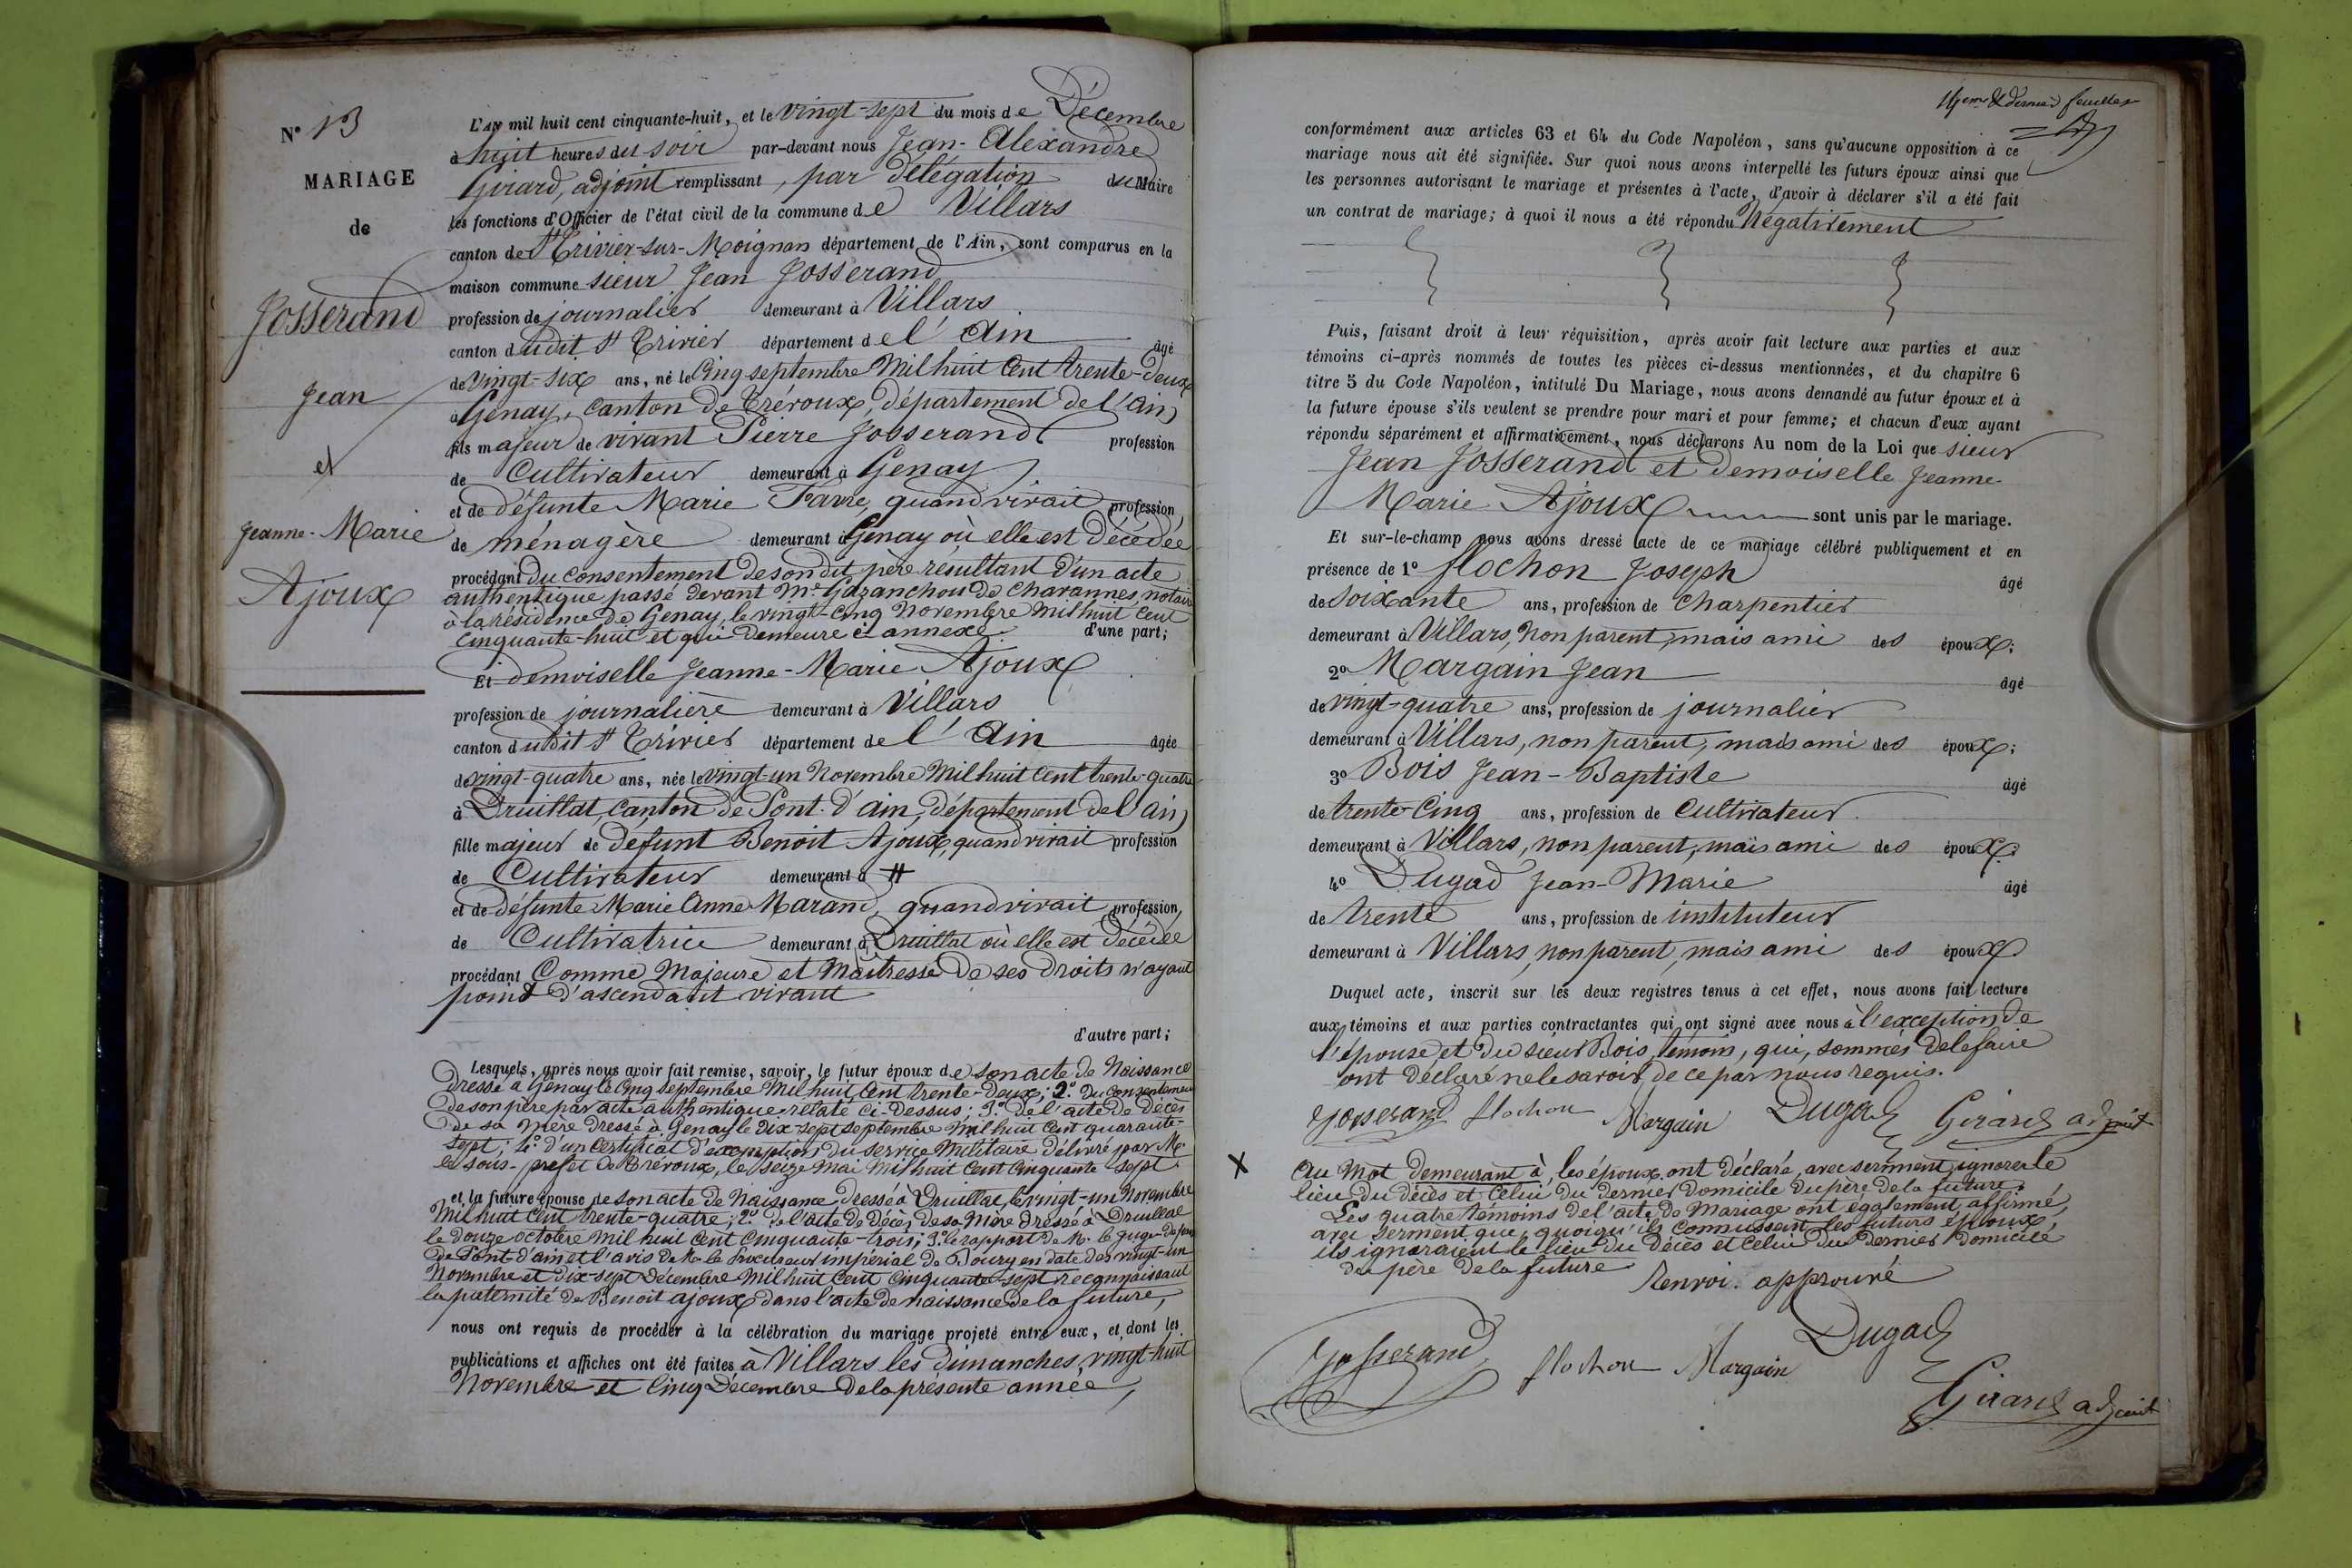 N° 13
MARIAGE
de
Josserand
Jean
et
Jeanne-Marie
Ajoux
L'an mil huit cent cinquante-huit, et le vingt-sept du mois de Décembre
à huit heures du soir par-devant nous Jean-Alexandre
Girard, adjoint remplissant, par délégation du Maire
les fonctions d'Officier de l'état civil de la commune de Villars
canton de St Trivier-sur-Moignan département de l'Ain, sont comparus en la
maison commune sieur Jean Josserand
profession de journalier demeurant à Villars
canton dudit St Trivier département de l'Ain âgé
de vingt-six ans, né le Cinq septembre Mil huit Cent trente-deux
à Genay, Canton de Trévoux, département de l'Ain,
fils majeur de vivant Pierre Josserand profession
de Cultivateur demeurant à Genay
et de défunte Marie Favre, quand vivait profession
de ménagère demeurant à Genay où elle est Décédée
procédant du consentement de son dit père résultant d'un acte
authentique passé devant Me de Charannes, notaire
à la résidence de Genay, le vingt-Cinq Novembre Mil huit Cent
Cinquante-huit et qui demeure ci-annexé. d'une part;
Et demoiselle Jeanne-Marie Ajoux
profession de journalière demeurant à Villars
canton dudit St Trivier département de l'Ain âgée
de vingt-quatre ans, née le vingt-un Novembre Mil huit Cent trente-quatre
à Druillat, Canton de Pont-d'ain, département de l'ain,
fille majeur de défunt Benoit Ajoux, quand vivait profession
de Cultivateur demeurant à #
et de défunte Marie Anne Marand, quand vivait, profession
de Cultivatrice demeurant à Druillat où elle est Décédée
procédant Comme Majeure et Maîtresse de ses droits n'ayant
point d'ascendant vivant
d'autre part;
Lesquels, après nous avoir fait remise, savoir, le futur époux de son acte de Naissance
Dressé à Genay le Cinq septembre Mil huit Cent trente-deux; 2° du Consentement
de son père par acte authentique relaté ci-dessus; 3° de l'acte de Décès
de sa Mère Dressé à Genay le Dix-sept septembre Mil huit Cent quarante-
sept; 4° d'un Certificat d'exemption du service Militaire délivré par Mr
le sous-préfet de Trévoux, le seize Mai Mil huit Cent Cinquante-sept
et la future épouse de son acte de Naissance Dressé à Druillat, le vingt-un Novembre
Mil huit Cent trente-quatre; 2° de l'acte de Décès de sa Mère Dressé à Druillat
le douze Octobre Mil huit Cent Cinquante-trois; 3° le rapport de Mr le Juge de paix
de Pont-d'ain et l'avis de Mr le Procureur impérial de Bourg en date des vingt-un
Novembre et dix-sept Décembre Mil huit Cent Cinquante-sept reconnaissant
la paternité de Benoit ajoux dans l'acte de naissance de la future,
nous ont requis de procéder à la célébration du mariage projeté entre eux, et dont les
publications et affiches ont été faites à Villars les dimanches, vingt-huit
Novembre et Cinq Décembre de la présente année,
14eme & dernier feuillet
conformément aux articles 63 et 64 du Code Napoléon, sans qu'aucune opposition à ce
mariage nous ait été signifiée. Sur quoi nous avons interpellé les futurs époux ainsi que
les personnes autorisant le mariage et présentes à l'acte, d'avoir à déclarer s'il a été fait
un contrat de mariage; à quoi il nous a été répondu Négativement
Puis, faisant droit à leur réquisition, après avoir fait lecture aux parties et aux
témoins ci-après nommés de toutes les pièces ci-dessus mentionnées, et du chapitre 6
titre 5 du Code Napoléon, intitulé Du Mariage, nous avons demandé au futur époux et à
la future épouse s'ils veulent se prendre pour mari et pour femme; et chacun d'eux ayant
répondu séparément et affirmativement, nous déclarons Au nom de la Loi que sieur
Jean Josserand et Demoiselle Jeanne-
Marie Ajoux sont unis par le mariage.
Et sur-le-champ nous avons dressé acte de ce mariage célébré publiquement et en
présence de 1° flochon Joseph âgé
de soixante ans, profession de Charpentier
demeurant à Villars, Non parent, mais ami des époux;
2° Margain Jean âgé
de vingt-quatre ans, profession de journalier
demeurant à Villars, non parent, mais ami des époux;
3° Bois Jean-Baptiste âgé
de trente-Cinq ans, profession de Cultivateur
demeurant à Villars, non parent, mais ami des époux;
4° Dugad Jean-Marie âgé
de trente ans, profession de instituteur
demeurant à Villars, non parent, mais ami des époux
Duquel acte, inscrit sur les deux registres tenus à cet effet, nous avons fait lecture
aux témoins et aux parties contractantes qui ont signé avec nous à l'exception de
l'épouse et du sieur Bois, témoin, qui, sommés de le faire
ont déclaré ne le savoir, de ce par nous requis.
Josserand flochon Margain Dugad Girard adjoint
X Au Mot demeurant à, les époux ont déclaré, avec serment, ignorer le
lieu du décès et Celui du dernier Domicile du père de la future.
Les quatre témoins de l'acte de Mariage ont également affirmé,
avec serment que, quoiqu'ils Connussent les futurs époux,
ils ignoraient le lieu du Décès et Celui du dernier domicile
du père de la future Renvoi approuvé
Josserand flochon Margain Dugad
Girard adjoint